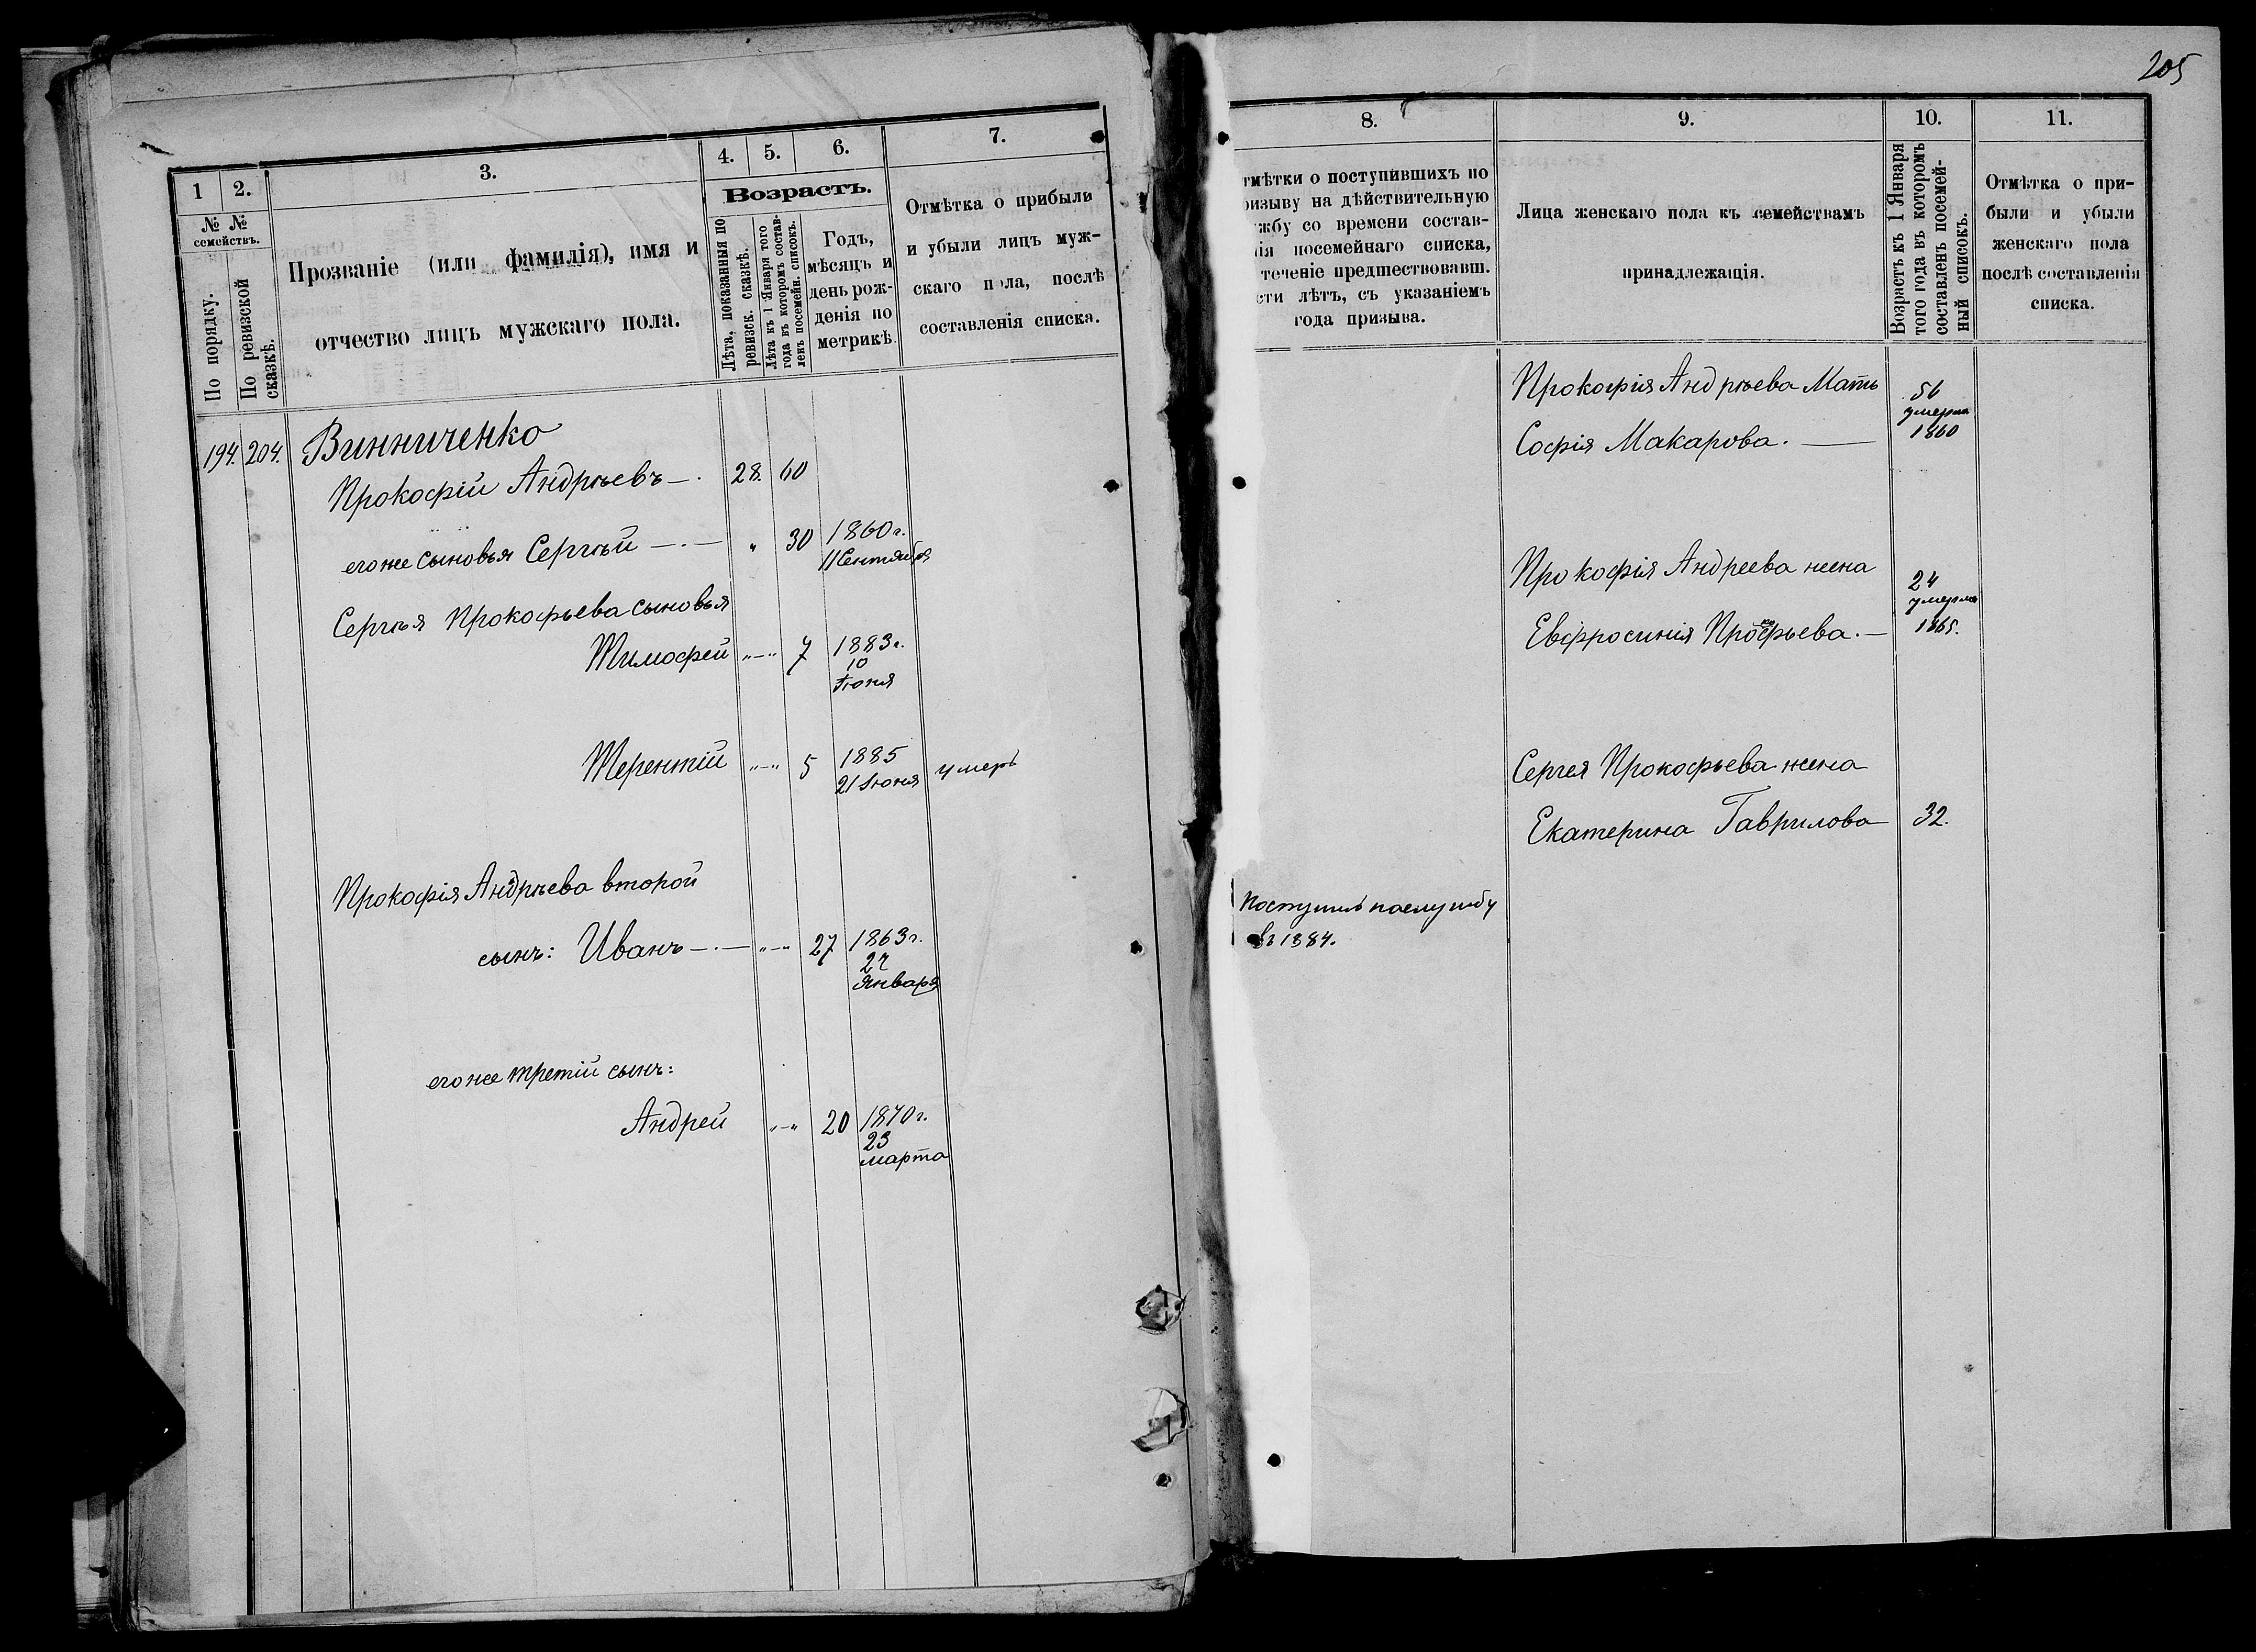 205
1
2.
3.
4.
5.
6.
7.
№ №
семействъ.
По порядку.
По ревизской
сказкѣ.
Прозваніе (или фамилія), имя и
отчество лицъ мужскаго пола.
Возрастъ.
Лѣта, показанныя по
ревизск. сказкѣ.
Лѣта къ 1 Января того
года въ которомъ состав-
ленъ посемейн. списокъ.
Годъ,
мѣсяцъ и
день рож-
денія по
метрикѣ.
Отмѣтка о прибыли
и убыли лицъ муж-
скаго пола, послѣ
составленія списка.
194. 204. Винниченко
Прокофій Андрѣевъ —. 28. 60
егоже сыновья Сергѣй —.— „ 30 1860 г.
11 Сентября
Сергѣя Прокофьева сыновья
Тимофей „—„ 7 1883 г.
10
Іюня
Терентій „—„ 5 1885
21 Іюня умеръ
Прокофія Андрѣева второй
сынъ: Иванъ —.— „—„ 27 1863 г.
27
Января
егоже третій сынъ:
Андрей „—„ 20 1870 г.
23
марта
8.
9.
10.
11.
тмѣтки о поступившихъ по
ризыву на дѣйствительную
жбу со времени состав-
ія посемейнаго списка,
теченіе предшествовавш.
сти лѣтъ, съ указаніемъ
года призыва.
Лица женскаго пола къ семействамъ
принадлежащія.
Возрастъ къ 1 Января
того года въ которомъ
составленъ посемей-
ный списокъ.
Отмѣтка о при-
были и убыли
женскаго пола
послѣ составленія
списка.
Прокофія Андрѣева Мать 56
умерла
Софія Макарова. — 1860
Прокофія Андреева жена 24
умерла
Евфросинія Прокофьева. — 1865.
Сергея Прокофьева жена
Екатерина Гаврилова 32.
Поступилъ на службу
въ 1884.